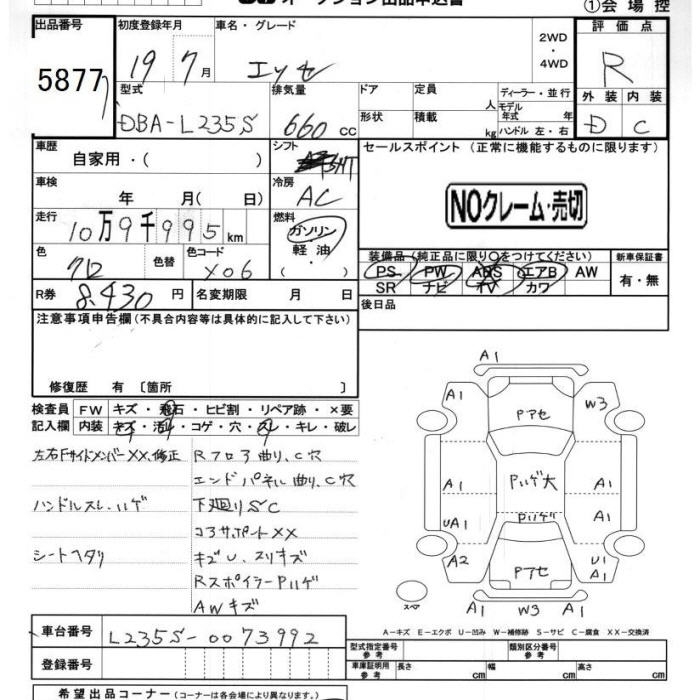 オークション出品申込書
①会場控
出品番号 初度登録年月 車名・グレード 評価点
5877 19 7月 エッセ 2WD ・ 4WD R
型式 排気量 ドア 定員 人 ディーラー・並行 外装 内装
DBA-L235S 660 CC 形状 積載 kg モデル年式 年 ハンドル 左・右 D C
車歴 自家用・( ) シフト 5MT セールスポイント (正常に機能するものに限ります)
車検 年 月( 日) 冷房 AC
NOクレーム・売切
走行 10万9千995km 燃料 ガソリン・軽油・( )
色 712 色替 色コード X06
装備品(純正品に限り○をつけてください) 新車保証書
PS PW ABS エアB AW 有・無
SR ナビ TV カワ
R券 8,430円 名変期限 月 日 後日品
注意事項申告欄(不具合内容等は具体的に記入して下さい)
修復歴 有 〔箇所 〕
検査員 FW キズ・飛石・ヒビ割・リペア跡・×要
記入欄 内装 キズ・汚れ・コゲ・穴・スレ・キレ・破レ
左右FサイドメンバーXX、修正 Rフロア曲り、C穴
エンドパネル曲り、C穴
ハンドルスレ、ハゲ 下廻りSC
コアサポートXX
シートヘタリ キズU、スリキズ
RスポイラーPハゲ
AWキズ
A1
A1 Pアセ W3
A1 Pハゲ大 A1
UA1 Pハゲ A1
A2 Pアセ U1 A1
スペア A1 W3 A1
A-キズ E-エクボ U-凹み W-補修跡 S-サビ C-腐食 XX-交換済
車台番号 L235S-0073992
登録番号
型式指定番号 参考 類別区分番号 参考
車庫証明用 参考 長さ cm 幅 cm 高さ cm
希望出品コーナー(コーナーは各会場により異なります。)